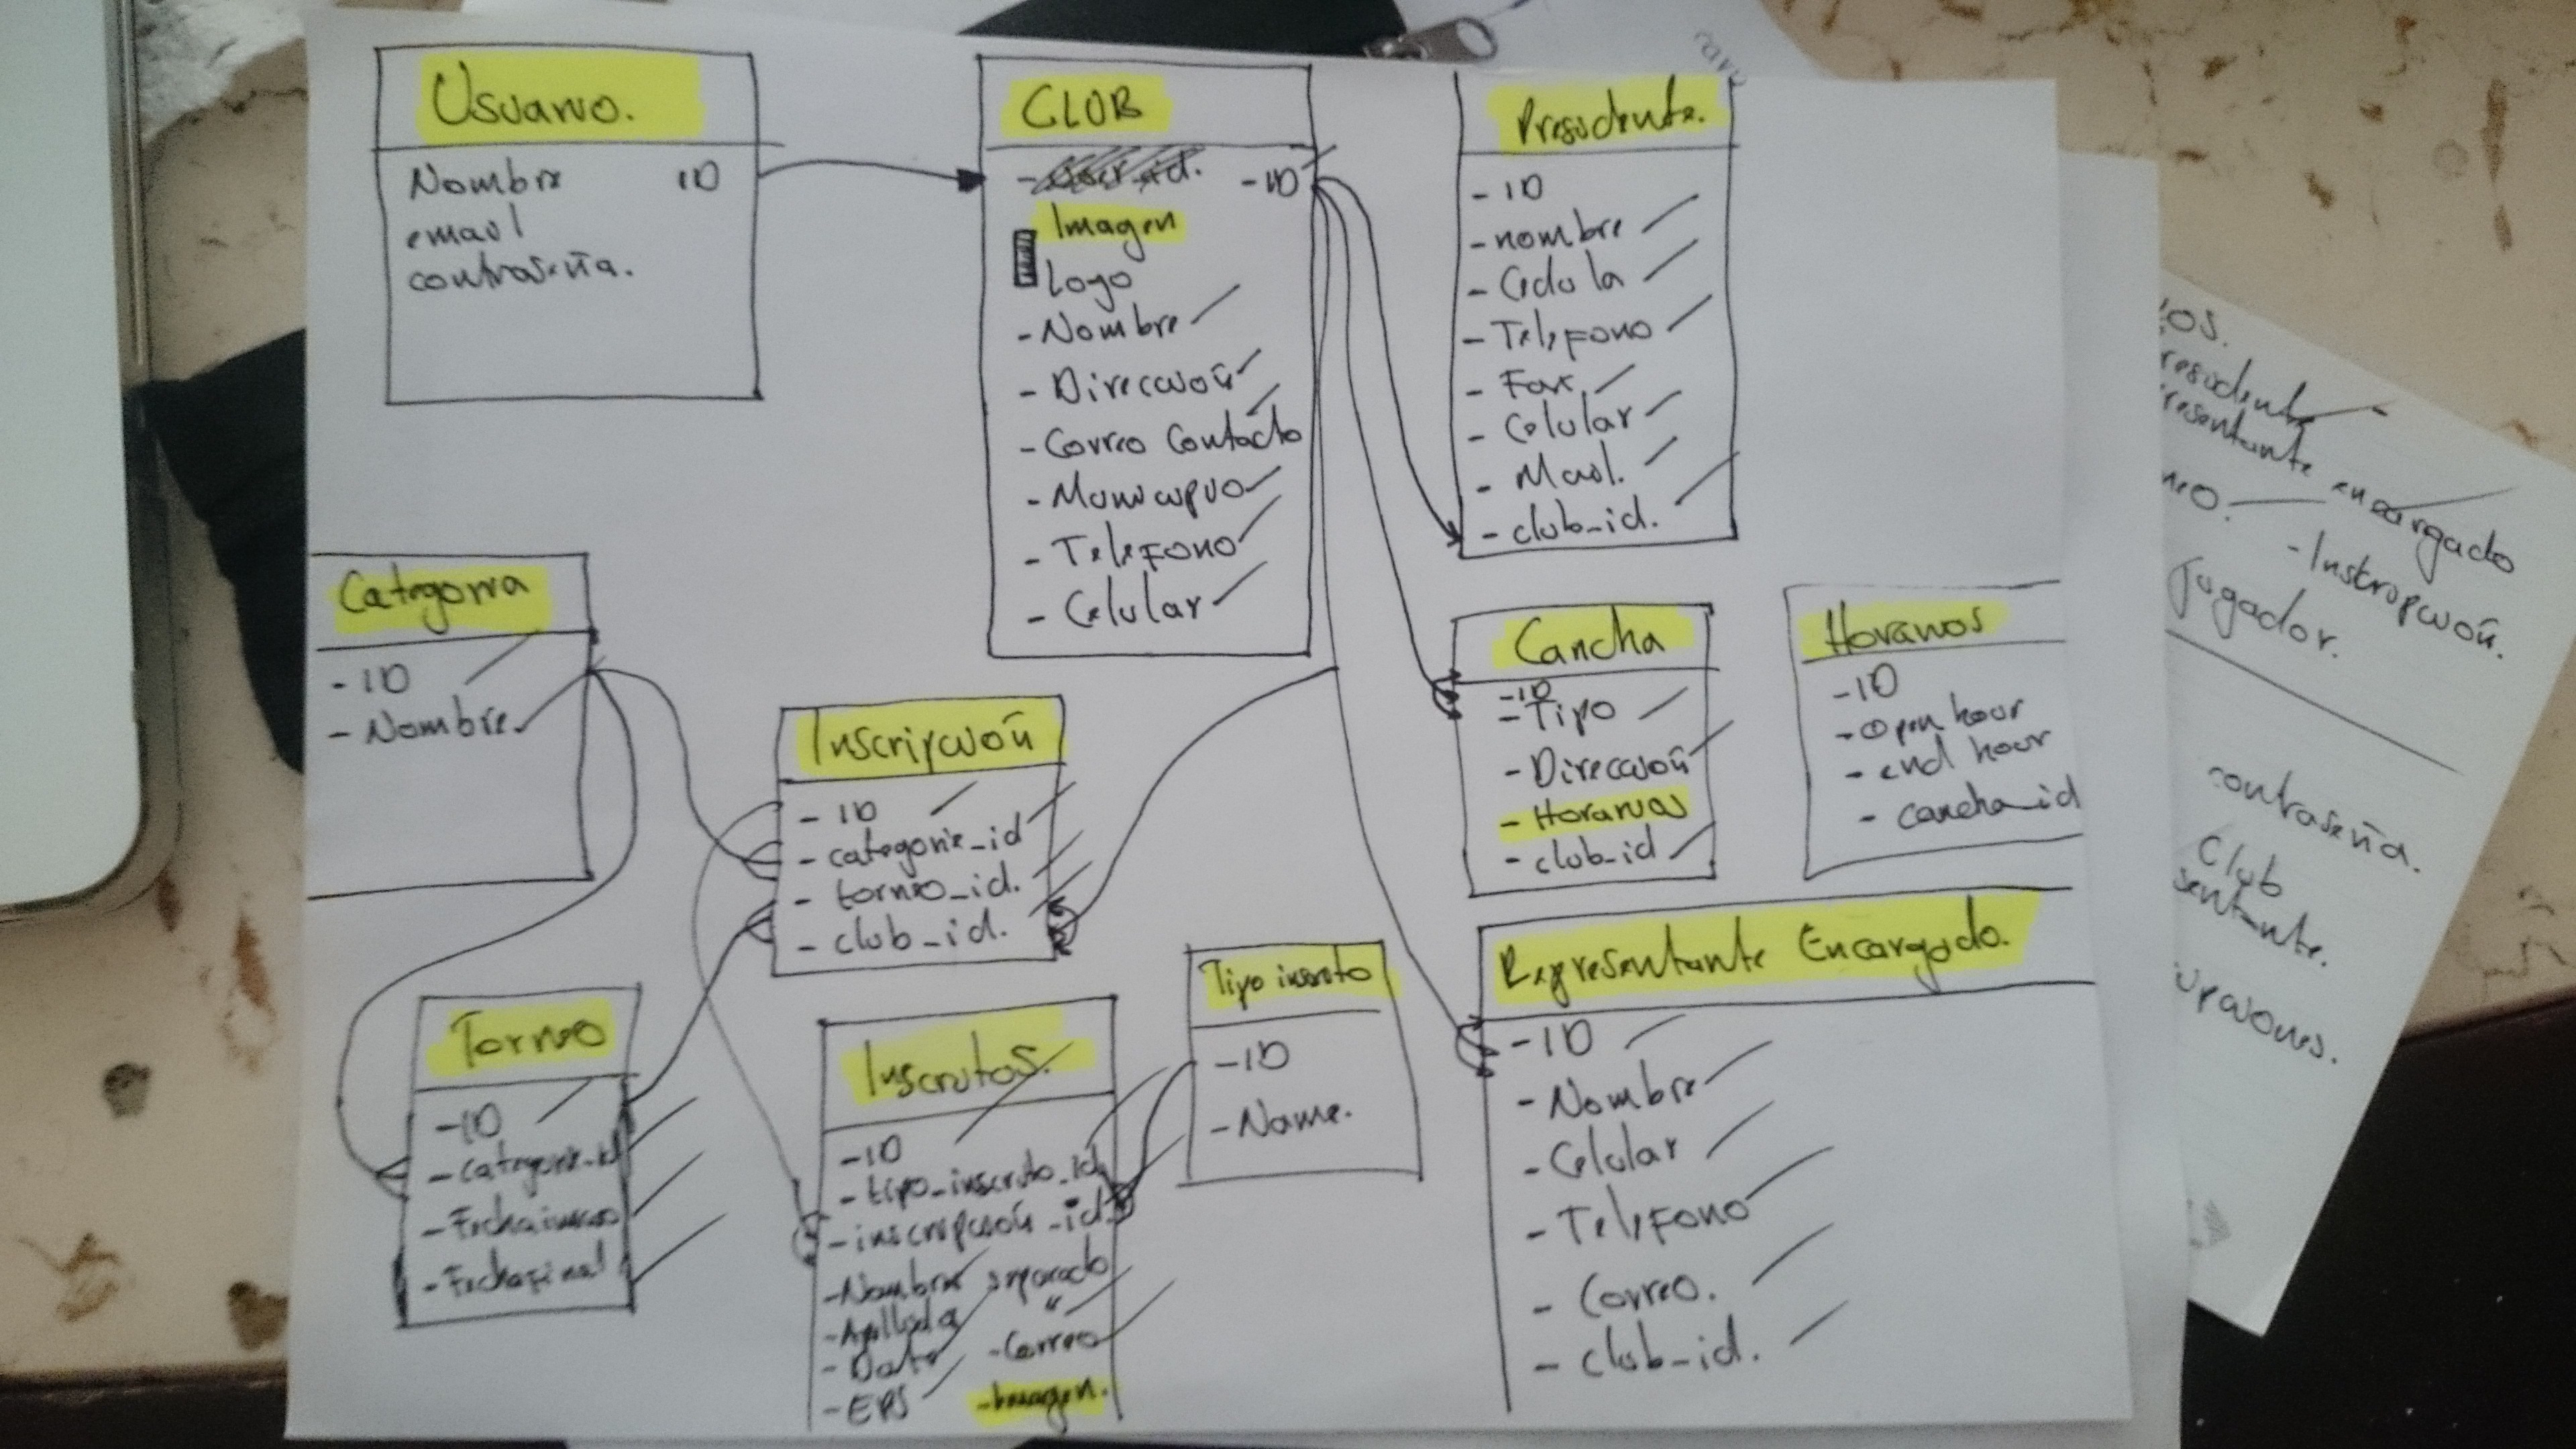 Usuario.
Nombre ID
email
contraseña.
CLUB
- ID
Imagen
Logo
- Nombre
- Dirección
- Correo Contacto
- Municipio
- Telefono
- Celular
Presidente.
- ID
- nombre
- Cedula
- Telefono
- Fax.
- Celular
- Mail.
- club_id.
Categoria
- ID
- Nombre
Inscripción
- ID
- categoria_id
- torneo_id.
- club_id.
Cancha
- ID
- Tipo
- Dirección
- Horarios
- club_id
Horarios
- ID
- Open hour
- end hour
- cancha_id
Torneo
- ID
- categoria_id
- Fechainicio
- Fechafinal
Inscritos.
- ID
- tipo_inscrito_id
- inscripción_id.
- Nombre separado
- Apellido "
- Date - Correo
- EPS - Imagen.
Tipo inscrito
- ID
- Name.
Representante Encargado.
- ID
- Nombre
- Celular
- Telefono
- Correo.
- club_id.
encargado
- Inscripción.
Jugador.
contraseña.
Club